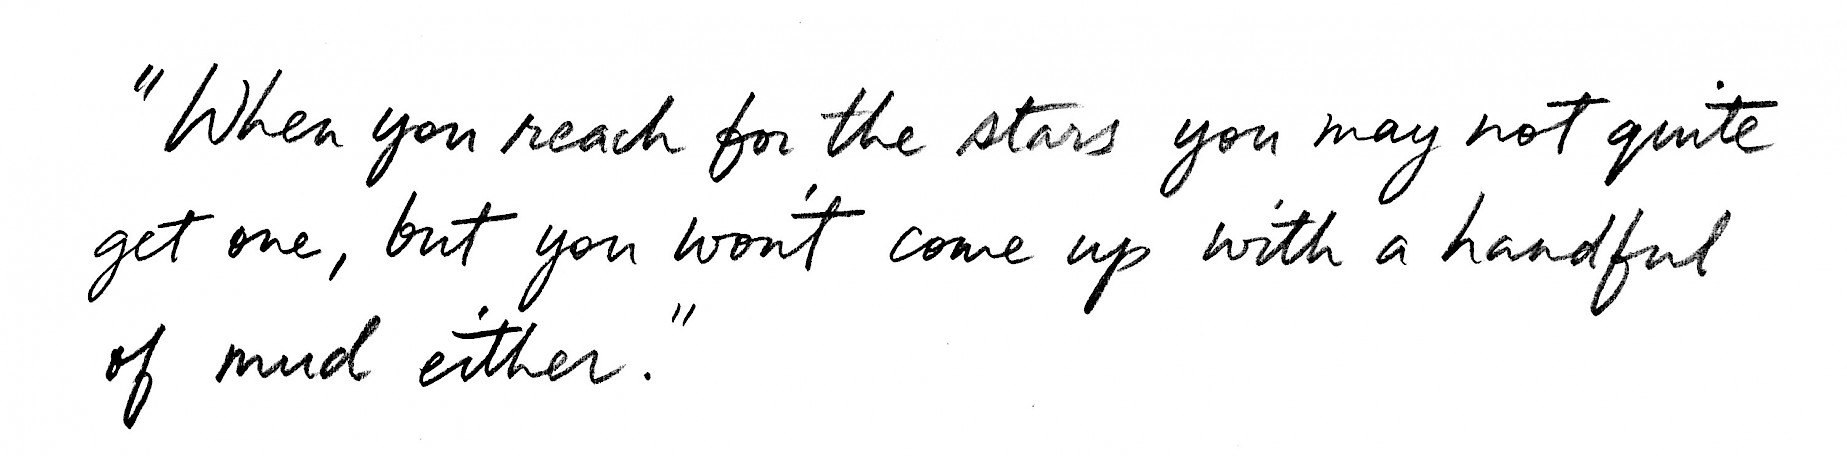 "When you reach for the stars you may not quite
get one, but you won't come up with a handful
of mud either."